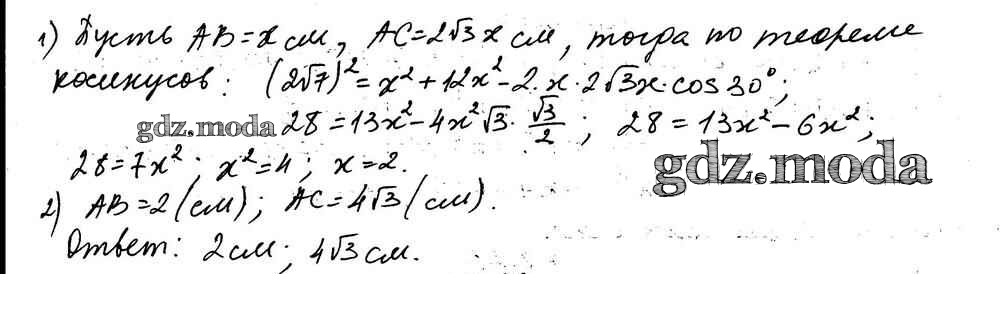 1) Пусть AB=x см, AC=2√3 x см, тогда по теореме
косинусов: (2√7)²=x²+12x²-2·x·2√3x·cos30°;
gdz.moda 28=13x²-4x²√3·√3/2; 28=13x²-6x²;
28=7x²; x²=4; x=2.
gdz.moda
2) AB=2(см); AC=4√3(см).
Ответ: 2см; 4√3см.